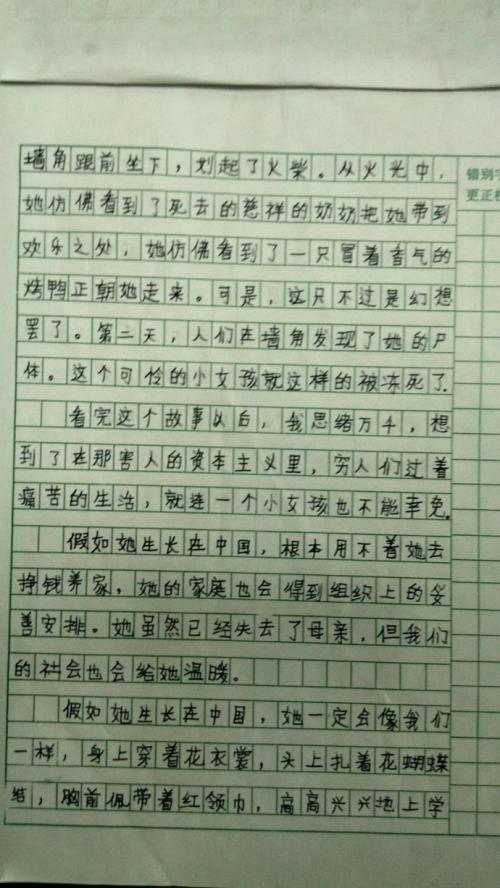 墙角跟前坐下，划起了火柴。从火光中，
她仿佛看到了死去的慈祥的奶奶把她带到
欢乐之处，她仿佛看到了一只冒着香气的
烤鸭正朝她走来。可是，这只不过是幻想
罢了。第二天，人们在墙角发现了她的尸
体。这个可怜的小女孩就这样的被冻死了.
看完这个故事以后，我思绪万千，想
到了在那害人的资本主义里，穷人们过着
痛苦的生活，就连一个小女孩也不能幸免.
假如她生长在中国，根本用不着她去
挣钱养家，她的家庭也会得到组织上的妥
善安排。她虽然已经失去了母亲，但我们
的社会也会给她温暖。
假如她生长在中国，她一定会像我们
一样，身上穿着花衣裳，头上扎着花蝴蝶
结，胸前佩带着红领巾，高高兴兴地上学
错别字
更正